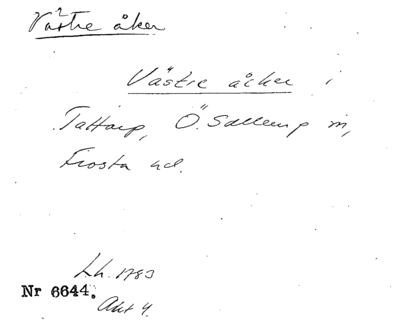 Västre åker
Västre åcker i
Tattarp, Ö. Sallerup sn,
Frosta hd.
Lh. 1783
Nr 6644.
Akt 4.